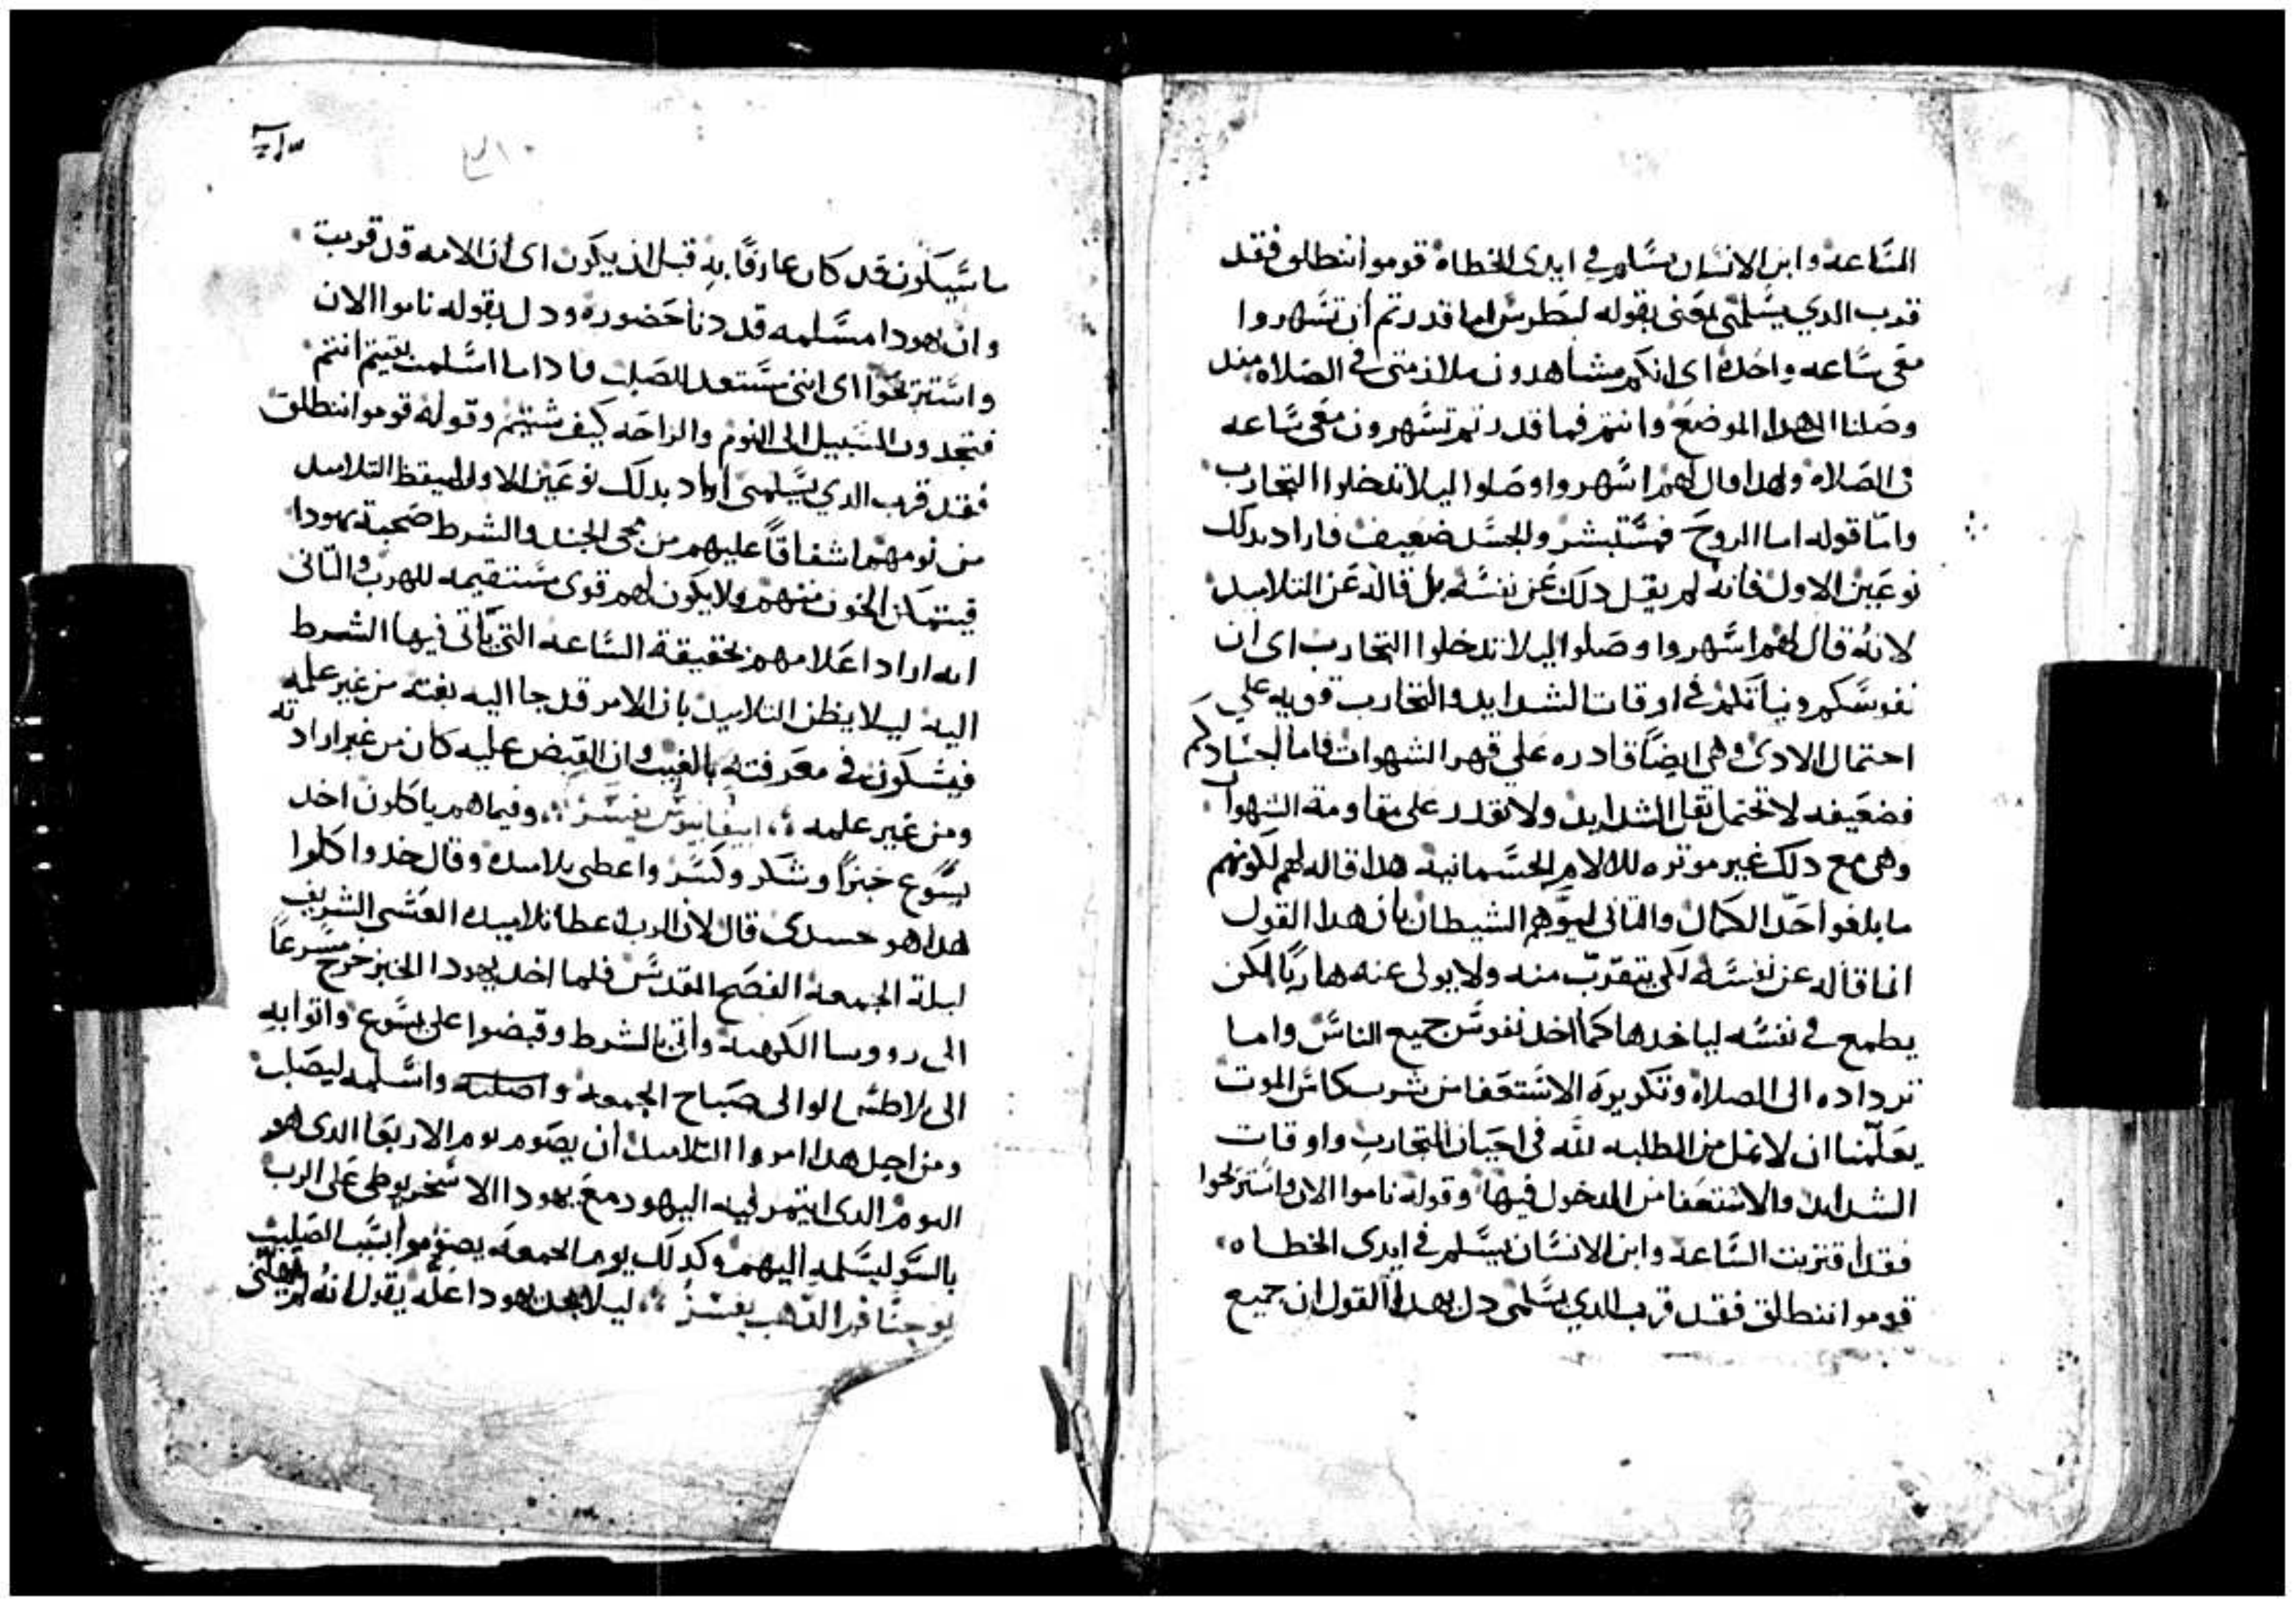 الساعه وابن الانسان يسلم في ايدى الخطاه قوموا ننطلق فقد
قرب الدي يسلمنى معنى بقوله لبطرس اما قدرتم أن تسهروا
معى ساعه واحدة اى انكم مشاهدون ملازمتى في الصلاه مند
وصلنا الى هدا الموضع وانتم فما قدرتم تسهرون معى ساعه
فى الصلاه ولهدا قال لهم اسهروا وصلوا ليلا تدخلوا التجارب
وامّا قوله اما الروح فمستبشر والجسد ضعيف فاراد بدلك
نوعين الاول فانه لم يقل دلك عن نفسه بل قاله عن التلاميد
لانه قال لهم اسهروا وصلوا ليلا تدخلوا التجارب اى ان
نفوسكم ونياتكم في اوقات الشدايد والتجارب قويه علي
احتمال الادى وهى ايضاً قادره على قهر الشهوات فاما اجسادكم
فضعيفه لا تحتمل ثقل الشدايد ولا تقدر على مقاومة الشهوات
وهى مع دلك غير موثره للالام الجسمانيه هدا قاله لهم لكونهم
ما بلغوا حدّ الكمال والتانى ليوهم الشيطان بأن هدا القول
انما قاله عن نفسه لكى يتقرّب منه ولا يولى عنه هارباً لكن
يطمع في نفسه لياخدها كما اخد نفوس جميع الناس واما
ترداده الى الصلاه وتكريره الاستعفا من شرب كاس الموت
يعلّمنا ان لا نمل من الطلبه لله فى احيان التجارب واوقات
الشدايد والاستعفا من الدخول فيها وقوله ناموا الان واستريحوا
فقد اقتربت الساعة وابن الانسان يسلم في ايدى الخطاه
قوموا ننطلق فقد قرب الدي يسلمنى دل بهدا القول ان جميع
ما سيكون قد كان عارفًا به قبل ان يكون اى ان الامه قد قربت
وان يهودا مسلمه قد دنا حضوره ودل بقوله ناموا الان
واستريحوا اى اننى مستعد للصلب فادا ما اسلمت بقيتم انتم
فتجدون السبيل الى النوم والراحه كيف شيتم وقوله قوموا ننطلق
فقد قرب الدي يسلمنى اراد بدلك نوعين الاول ليقظ التلاميد
من نومهم اشفاقاً عليهم من مجى الجند والشرط صحبة يهودا
فيتمكن الخوف منهم ولا يكون لهم قوى مستقيمه للهرب والتانى
انه اراد اعلامهم بحقيقة الساعه التى يأتى فيها الشرط
اليه ليلا يظن التلاميد بان الامر قد جا اليه بغته من غير علمه
فيشكون في معرفته بالغيب وان القبض عليه كان من غير ارادته
ومن غير علمه ابيفانيوس يفسر وفيما هم ياكلون اخد
يسوع خبزاً وشكر وكسر واعطى تلاميده وقال خدوا كلوا
هدا هو جسدى قال لان الرب اعطا تلاميده العشى الشريف
ليلة الجمعه الفصح المقدس فلما اخد يهودا الخبز خرج مسرعاً
الى رووسا الكهنه وأتى بالشرط وقبضوا على يسوع واتوا به
الى بيلاطس الوالى صباح الجمعه واسلمه ليصلب
ومن اجل هدا امروا التلاميد أن يصوم يوم الاربعا الدى هو
اليوم الدى ايتمر فيه اليهود مع يهودا الاسخريوطى على الرب
بالسو ليسلمه اليهم وكدلك يوم الجمعه يصوموا بسبب الصليب
يوحنا فم الدهب يفسر ليلا يجد يهودا عله يقول انه لم